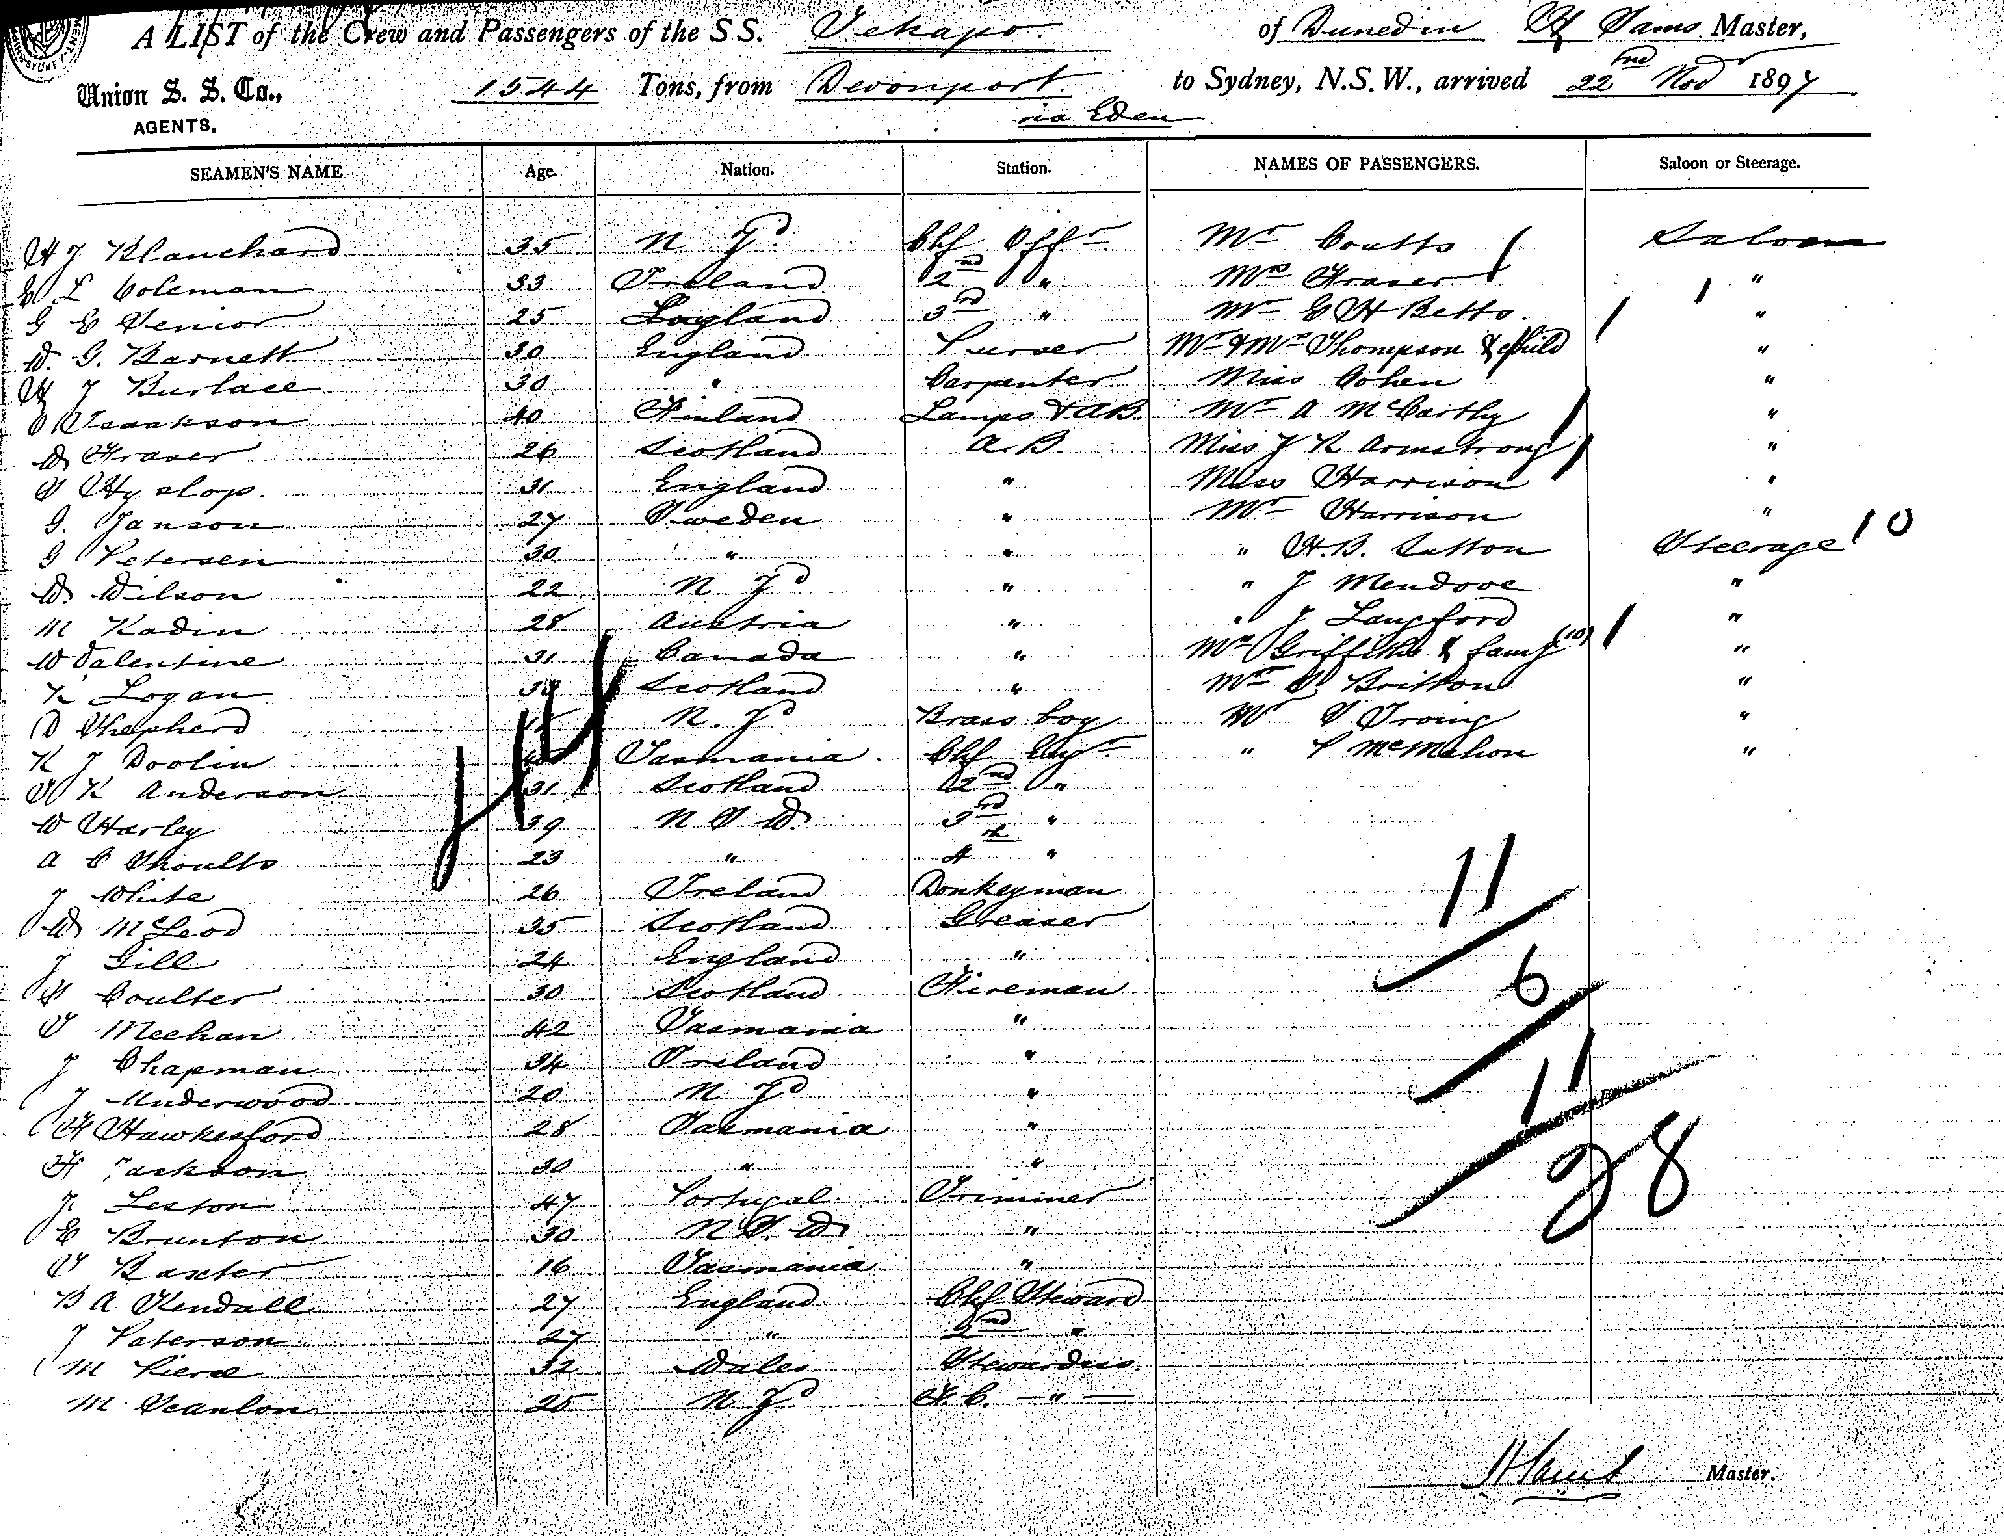 A LIST of the Crew and Passengers of the S S. Tekapo of Dunedin W Sams Master,
Union S. S. Co., 1544 Tons, from Devonport to Sydney, N.S.W., arrived 22nd Nov 1897
AGENTS. via Eden
SEAMEN'S NAME Age. Nation. Station. NAMES OF PASSENGERS. Saloon or Steerage.
W J Blanchard 35 N Zd Chf Offr Mr Coutts Saloon
E L Coleman 33 Ireland 2nd " Mrs Fraser "
G E Senior 25 England 3rd " Mr G H Betts "
W. G. Barnett 30 England Purser Mr & Mrs Thompson & child "
W J Burlace 30 " Carpenter Miss Cohen "
C Isaakson 40 Finland Lamps & A.B. Mr A McCarthy "
D Fraser 26 Scotland A.B. Miss J R Armstrong "
T Hyslop 31 England " Miss Harrison "
G. Janson 27 Sweden " Mr Harrison "
G Petersen 30 " " " W.B. Sutton Steerage 10
W. Wilson 22 N Zd " " J Mendove "
M Radin 28 Austria " " J Langford "
W Valentine 31 Canada " Mrs Griffiths & famy (10) "
R Logan Scotland " Mr S. Britton "
D Shepherd 15 N. Zd Brass boy Mr T Irving "
R J Doolin Tasmania Chf Engr " P McMahon "
T K Anderson 31 Scotland 2nd "
W Harley 39 N S W. 3rd "
A C Shoults 23 " 4th "
J White 26 Ireland Donkeyman
W McLeod 35 Scotland Greaser
J Gill 24 England "
T Coulter 30 Scotland Fireman
T Meehan 42 Tasmania "
J Chapman 34 Ireland "
J Underwood 20 N Zd "
H Hawkesford 28 Tasmania "
H Jackson 30 " "
J. Leston 47 Portugal Trimmer
E Brunton 30 N S. W. "
T Baxter 16 Tasmania "
B A Kendall 27 England Chf Steward
J Paterson 27 " 2nd "
M Pierce 32 Wales Stewardess
M Scanlon 25 N Zd F. C. — " —
11
6
11
28
W Sams Master.